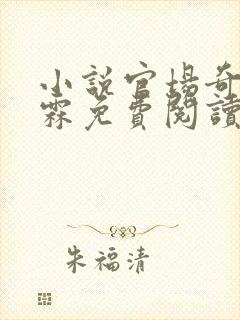 小說官場奇
霖免費閱讀
朱福清